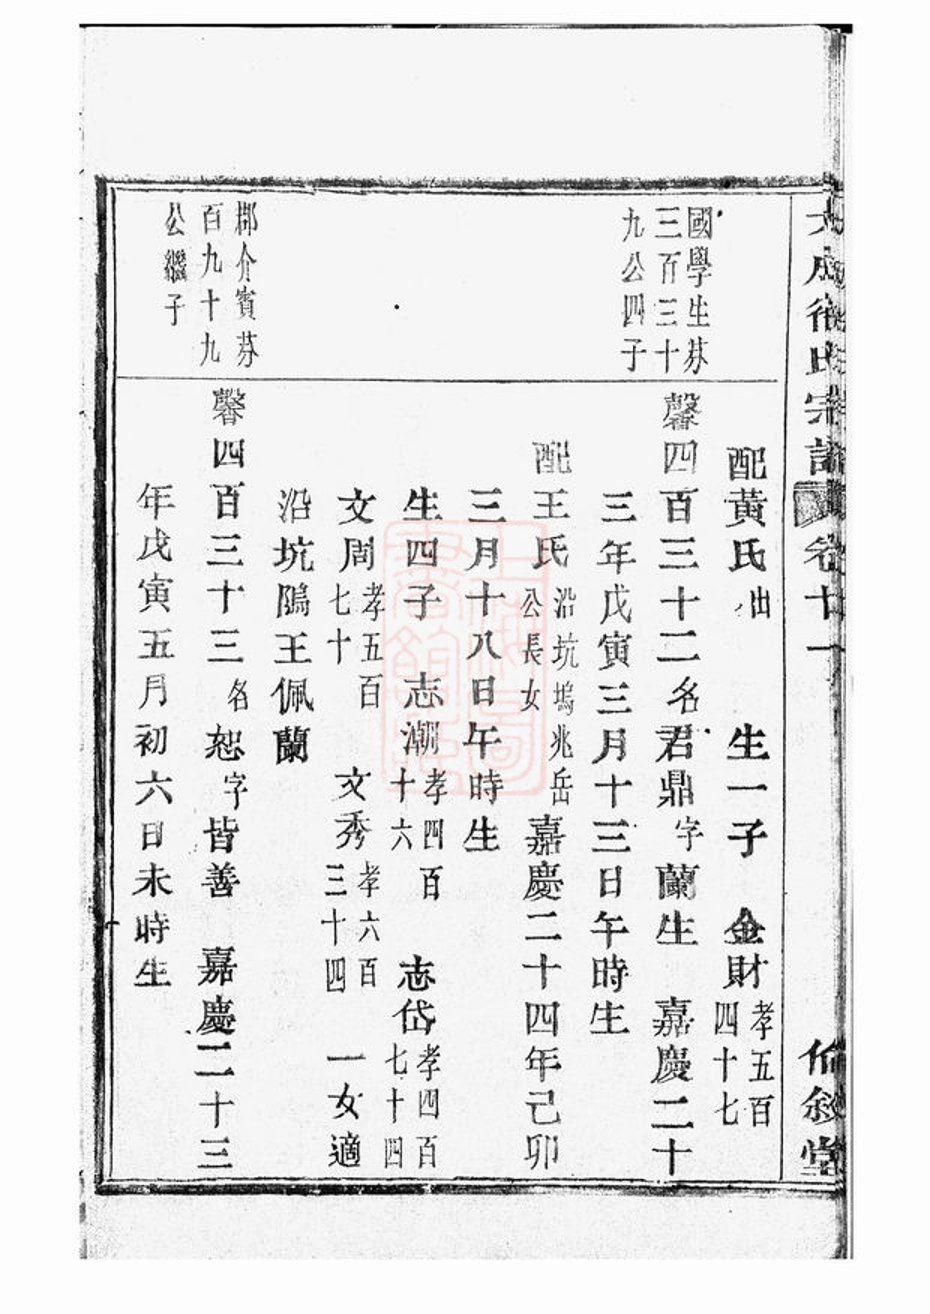 大成徐氏宗譜 卷廿一 倫敘堂
配黃氏 出 生一子 金財 孝五百四十七
國學生棻三百三十九公四子
馨四百三十二名君鼎字蘭生 嘉慶二十
三年戊寅三月十三日午時生
配王氏 沿坑塢兆岳公長女 嘉慶二十四年己卯
三月十八日午時生
生四子 志潮 孝四百十六 志岱 孝四百七十四
文周 孝五百七十 文秀 孝六百三十四 一女適
沿坑隝王佩蘭
鄉介賓芬百九十九公繼子
馨四百三十三名恕字皆善 嘉慶二十三
年戊寅五月初六日未時生